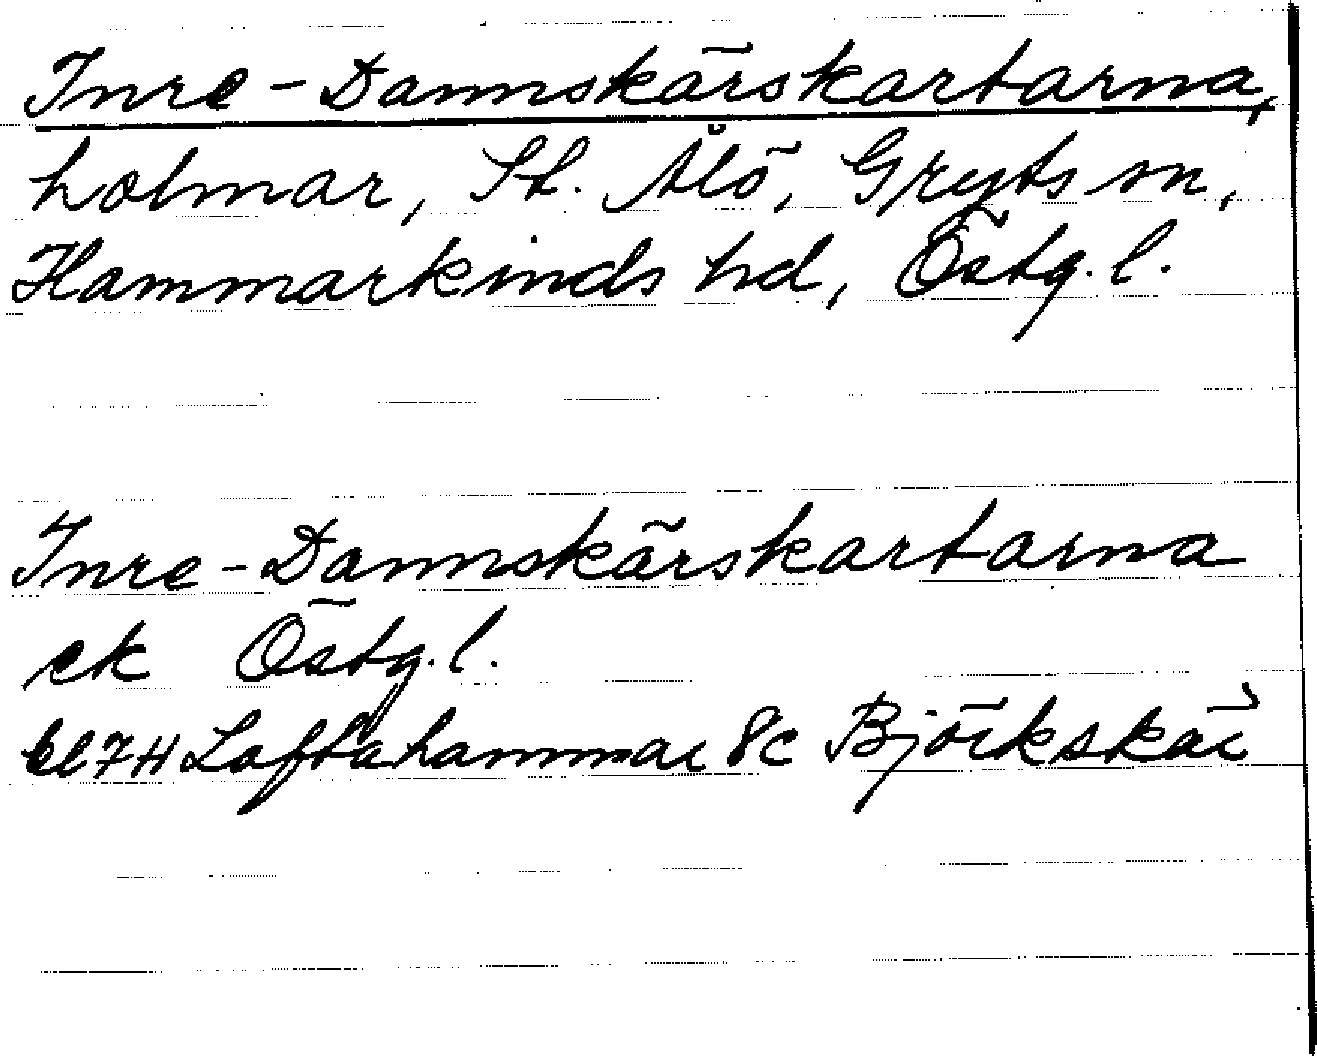 Inre-Dannskärskartarna,
holmar, St. Ålö, Gryts sn,
Hammarkinds hd, Östg. l.
Inre-Dannskärskartarna
ek Östg. l.
bl 7H Loftahammar 8c Björkskär